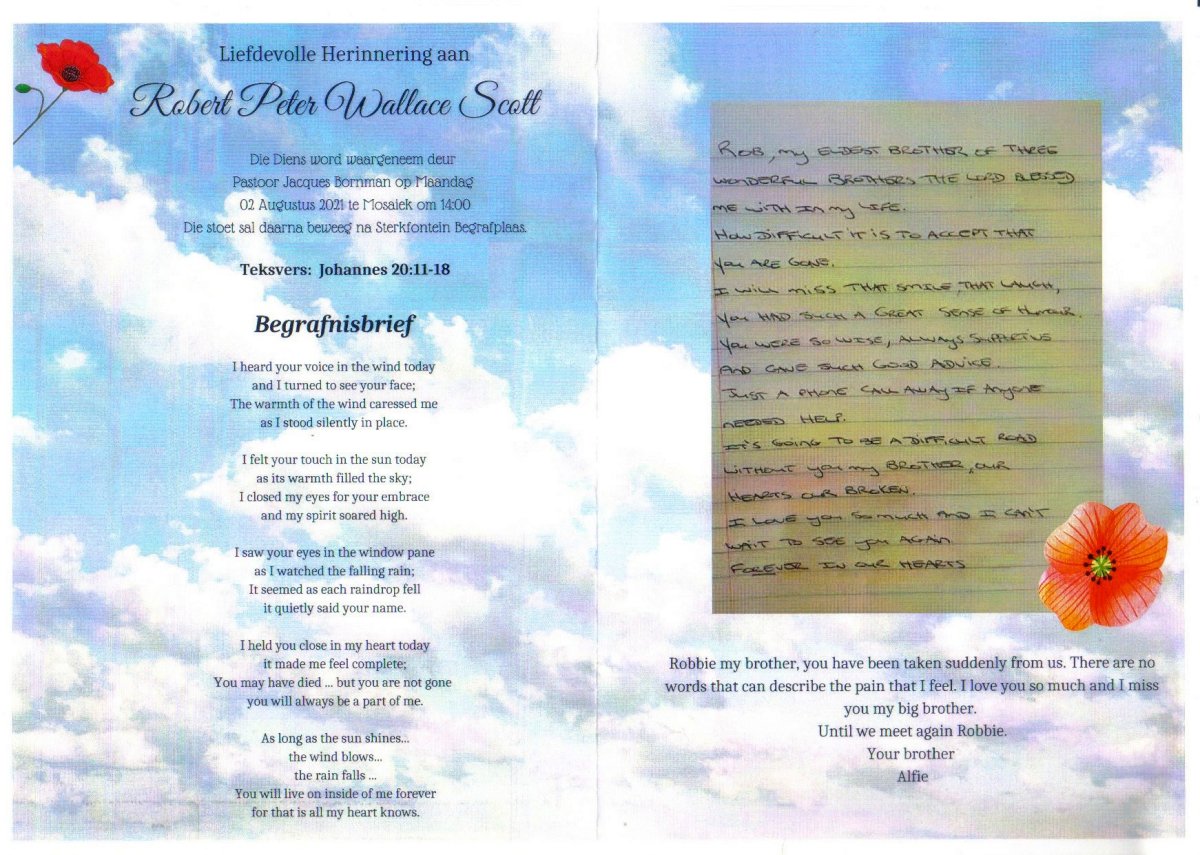 Liefdevolle Herinnering aan
Robert Peter Wallace Scott
Die Diens word waargeneem deur
Pastoor Jacques Bornman op Maandag
02 Augustus 2021 te Mosaiek om 14:00
Die stoet sal daarna beweeg na Sterkfontein Begrafplaas.
Teksvers: Johannes 20:11-18
Begrafnisbrief
I heard your voice in the wind today
and I turned to see your face;
The warmth of the wind caressed me
as I stood silently in place.
I felt your touch in the sun today
as its warmth filled the sky;
I closed my eyes for your embrace
and my spirit soared high.
I saw your eyes in the window pane
as I watched the falling rain;
It seemed as each raindrop fell
it quietly said your name.
I held you close in my heart today
it made me feel complete;
You may have died ... but you are not gone
you will always be a part of me.
As long as the sun shines...
the wind blows...
the rain falls ...
You will live on inside of me forever
for that is all my heart knows.
ROB, my ELDEST BROTHER OF THREE
WONDERFUL BROTHERS THE LORD BLESSED
ME WITH IN my LIFE.
HOW DIFFICULT IT IS TO ACCEPT THAT
you ARE GONE.
I WILL MISS THAT SMILE, THAT LAUGH,
you HAD SUCH A GREAT SENSE OF HUMOUR.
you WERE SO WISE, ALWAYS SUPPORTIVE
AND GAVE SUCH GOOD ADVICE.
JUST A PHONE CALL AWAY IF ANyONE
NEEDED HELP.
IT'S GOING TO BE A DIFFICULT ROAD
WITHOUT you my BROTHER, OUR
HEARTS OUR BROKEN.
I LOVE you SO MUCH AND I CAN'T
WAIT TO SEE you AGAIN
FOREVER IN OUR HEARTS
Robbie my brother, you have been taken suddenly from us. There are no
words that can describe the pain that I feel. I love you so much and I miss
you my big brother.
Until we meet again Robbie.
Your brother
Alfie